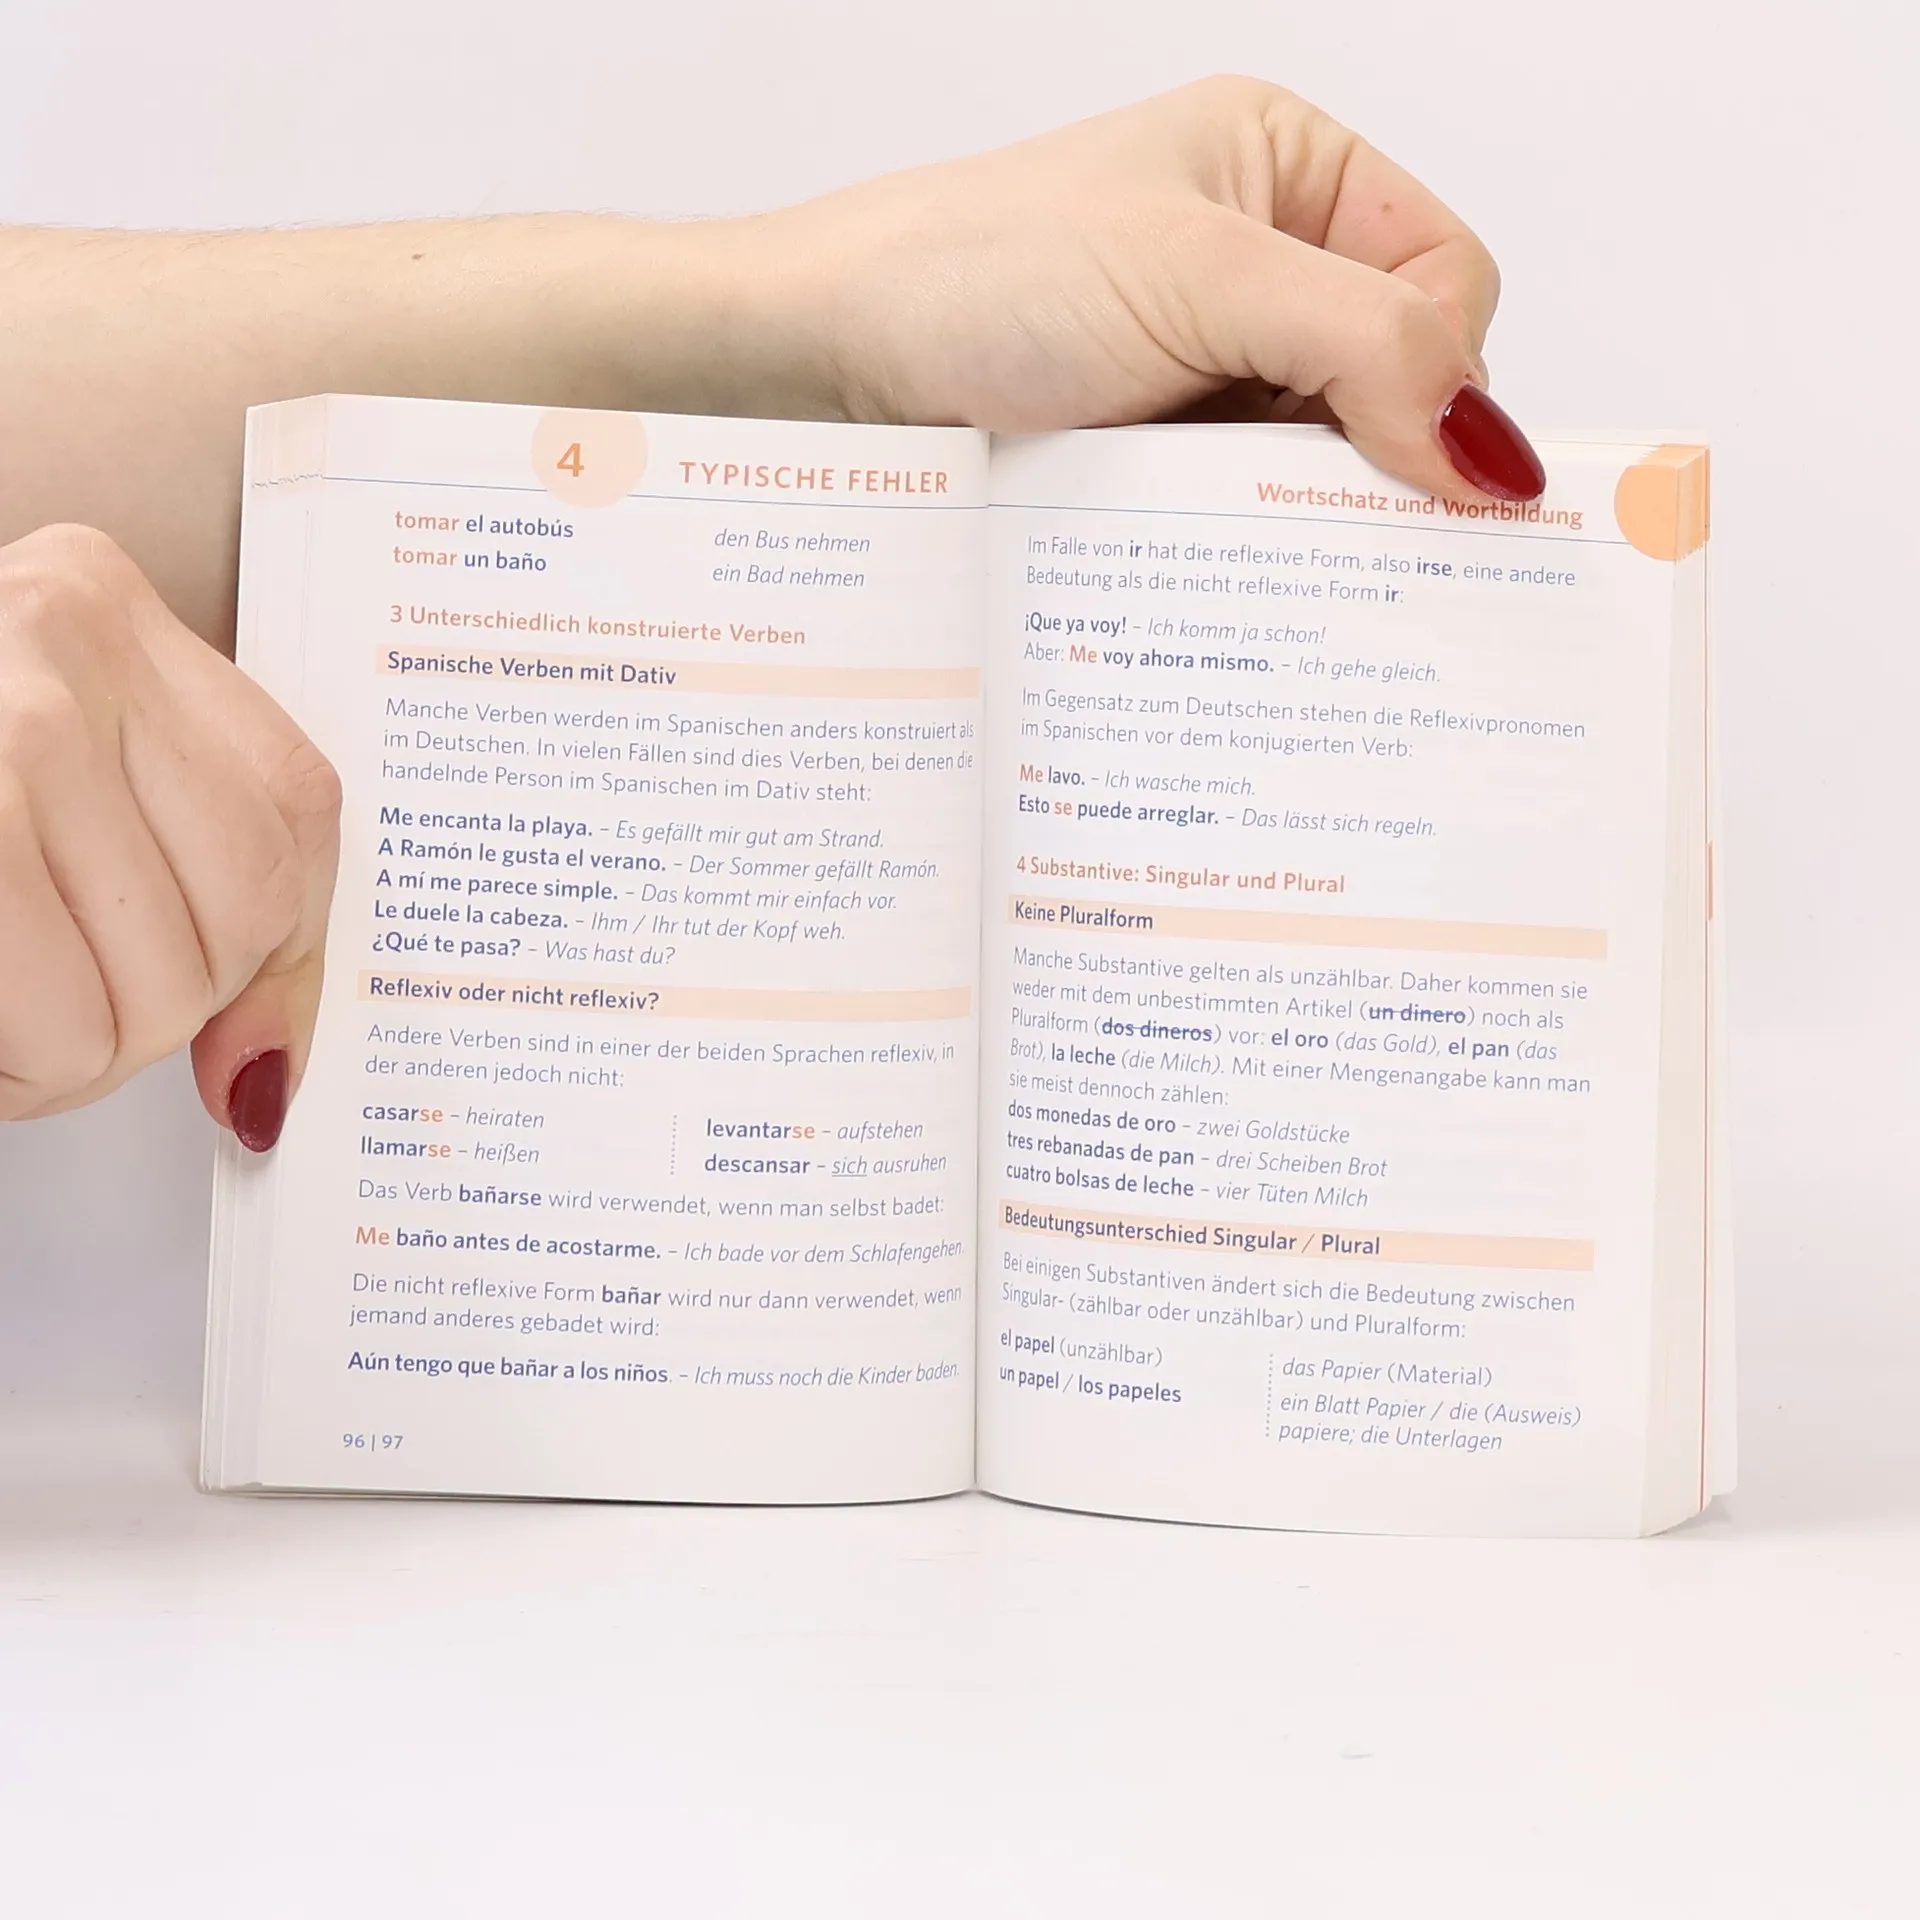 4
TYPISCHE FEHLER
tomar el autobús den Bus nehmen
tomar un baño ein Bad nehmen
3 Unterschiedlich konstruierte Verben
Spanische Verben mit Dativ
Manche Verben werden im Spanischen anders konstruiert als
im Deutschen. In vielen Fällen sind dies Verben, bei denen die
handelnde Person im Spanischen im Dativ steht:
Me encanta la playa. – Es gefällt mir gut am Strand.
A Ramón le gusta el verano. – Der Sommer gefällt Ramón.
A mí me parece simple. – Das kommt mir einfach vor.
Le duele la cabeza. – Ihm / Ihr tut der Kopf weh.
¿Qué te pasa? – Was hast du?
Reflexiv oder nicht reflexiv?
Andere Verben sind in einer der beiden Sprachen reflexiv, in
der anderen jedoch nicht:
casarse – heiraten levantarse – aufstehen
llamarse – heißen descansar – sich ausruhen
Das Verb bañarse wird verwendet, wenn man selbst badet:
Me baño antes de acostarme. – Ich bade vor dem Schlafengehen.
Die nicht reflexive Form bañar wird nur dann verwendet, wenn
jemand anderes gebadet wird:
Aún tengo que bañar a los niños. – Ich muss noch die Kinder baden.
96 | 97
Wortschatz und Wortbildung
Im Falle von ir hat die reflexive Form, also irse, eine andere
Bedeutung als die nicht reflexive Form ir:
¡Que ya voy! – Ich komm ja schon!
Aber: Me voy ahora mismo. – Ich gehe gleich.
Im Gegensatz zum Deutschen stehen die Reflexivpronomen
im Spanischen vor dem konjugierten Verb:
Me lavo. – Ich wasche mich.
Esto se puede arreglar. – Das lässt sich regeln.
4 Substantive: Singular und Plural
Keine Pluralform
Manche Substantive gelten als unzählbar. Daher kommen sie
weder mit dem unbestimmten Artikel (un dinero) noch als
Pluralform (dos dineros) vor: el oro (das Gold), el pan (das
Brot), la leche (die Milch). Mit einer Mengenangabe kann man
sie meist dennoch zählen:
dos monedas de oro – zwei Goldstücke
tres rebanadas de pan – drei Scheiben Brot
cuatro bolsas de leche – vier Tüten Milch
Bedeutungsunterschied Singular / Plural
Bei einigen Substantiven ändert sich die Bedeutung zwischen
Singular- (zählbar oder unzählbar) und Pluralform:
el papel (unzählbar) das Papier (Material)
un papel / los papeles ein Blatt Papier / die (Ausweis)
papiere; die Unterlagen